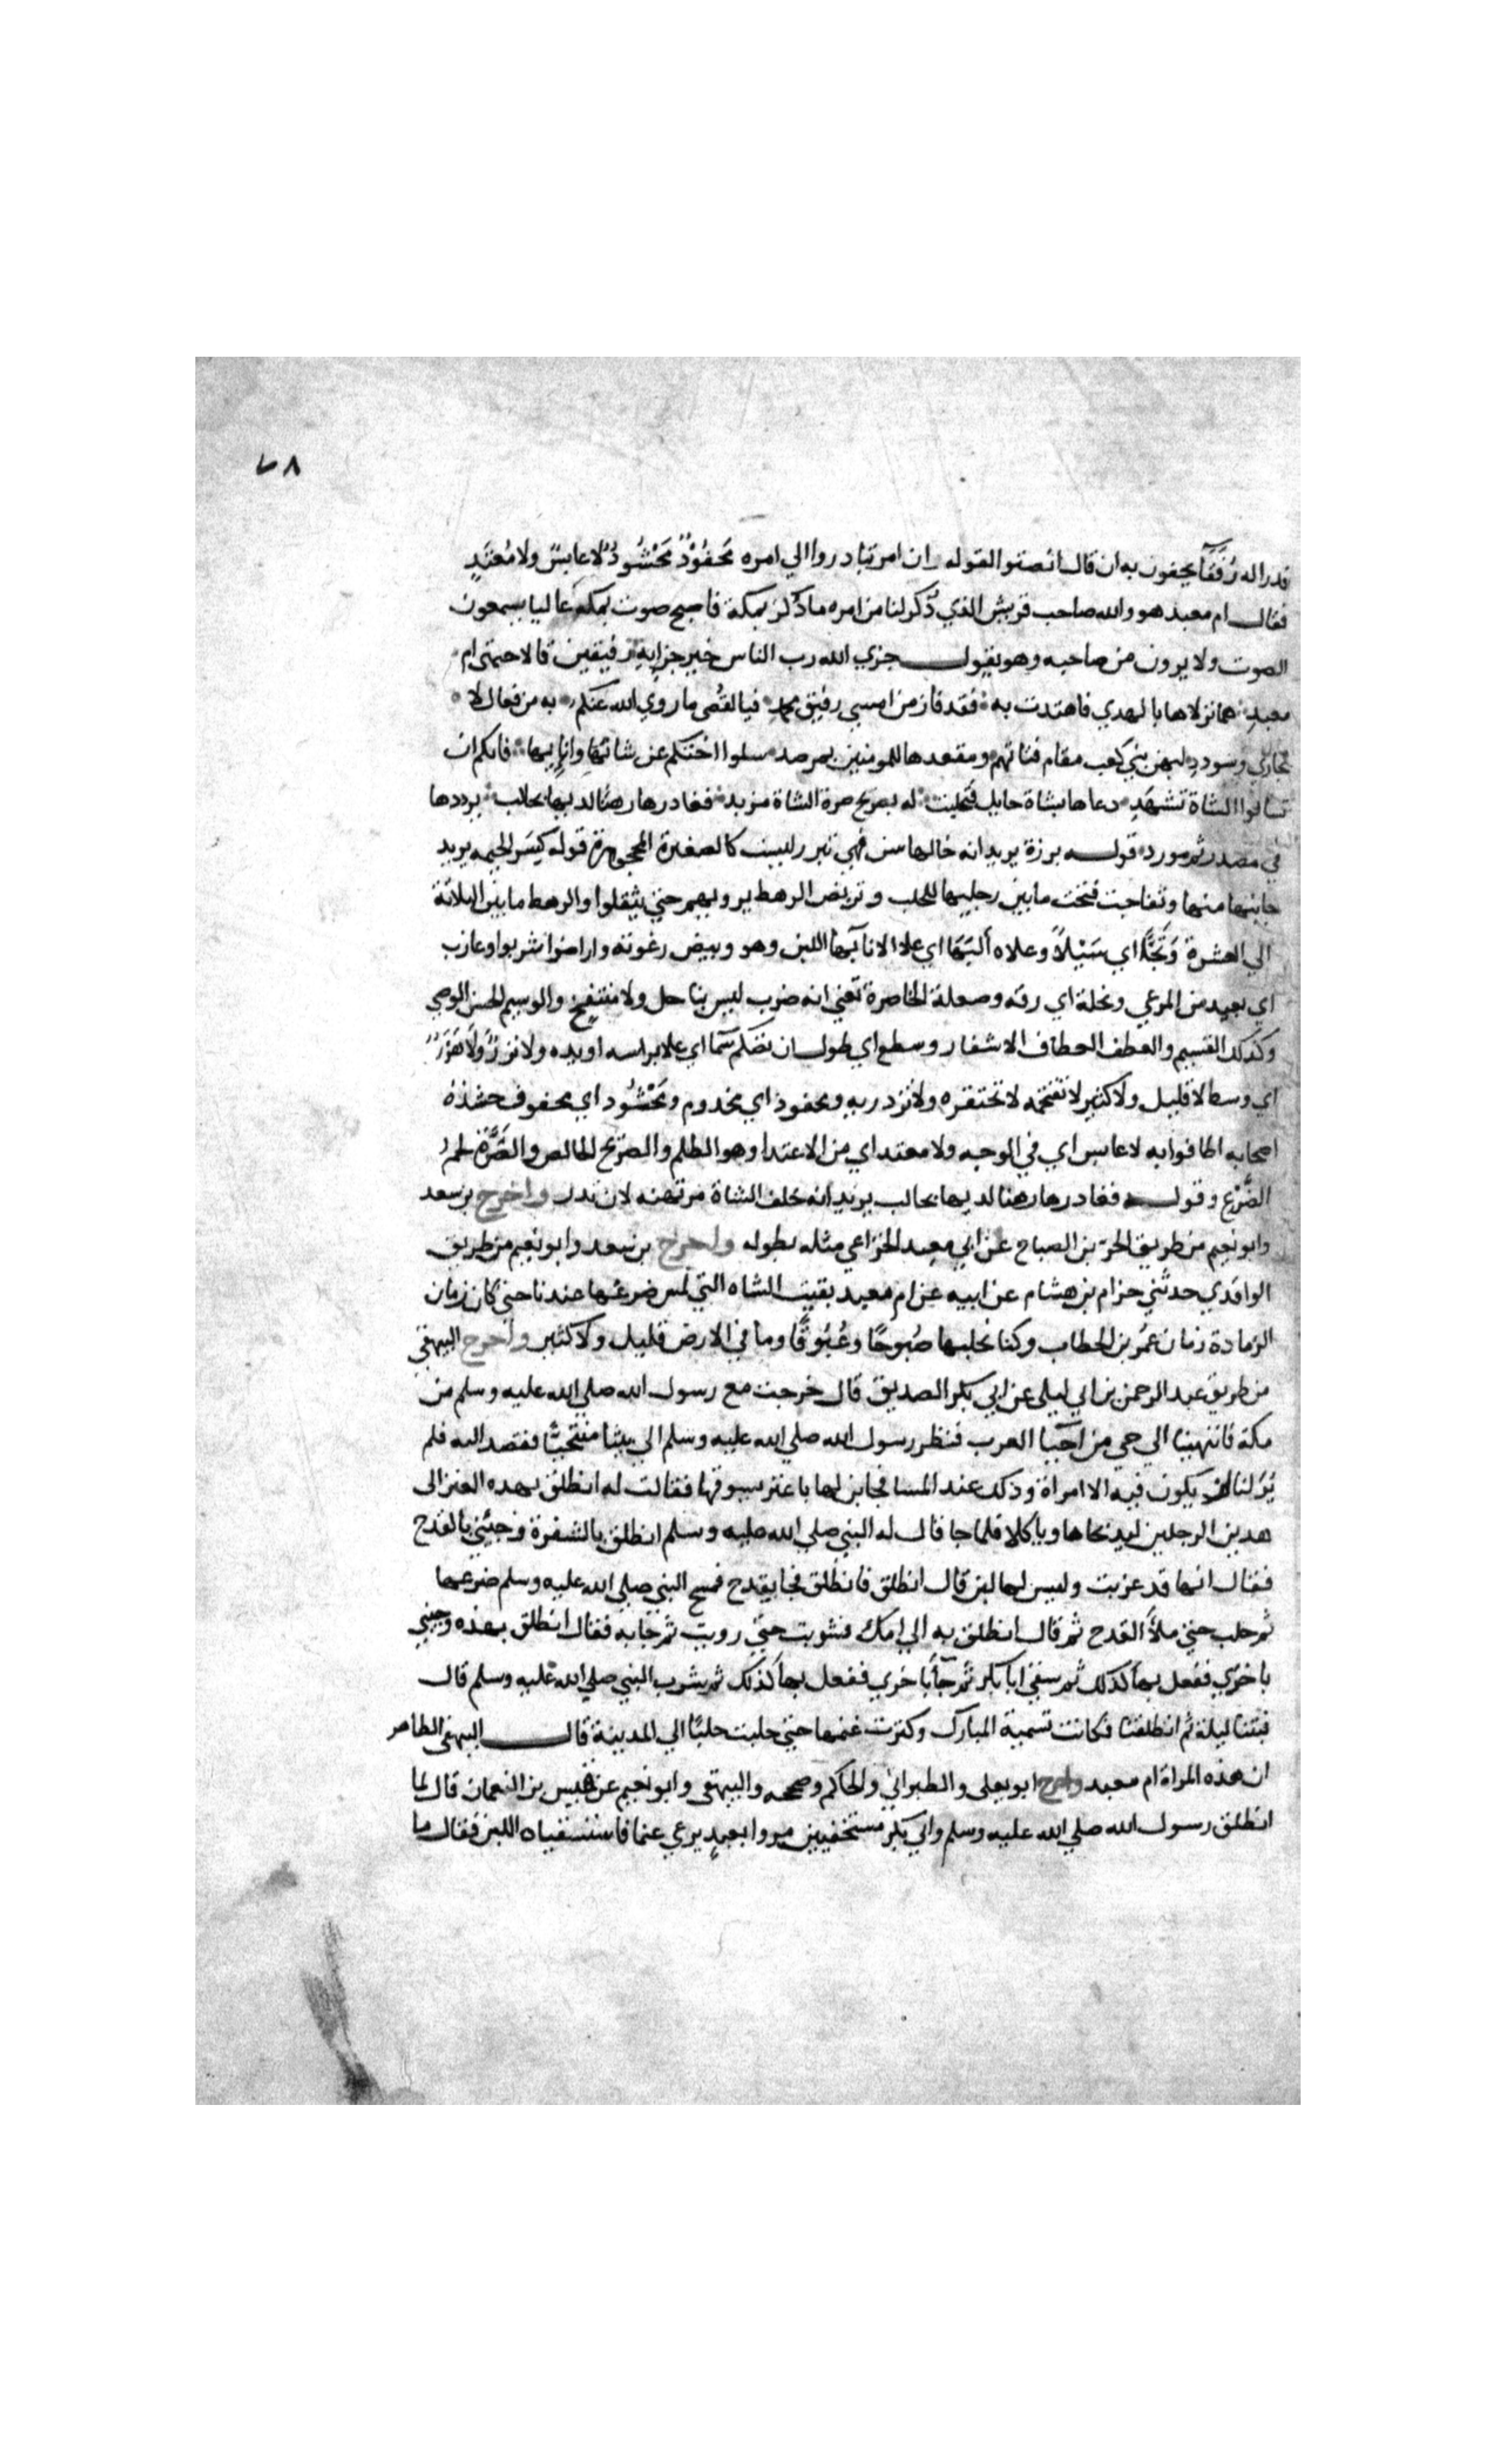 ٧٨
قدرا له رُفَقَآ يحفون به ان قال انصتوا لقوله وان امر تبادروا الي امره مَحفُوْدٌ مَحْشُودٌ لا عابسٌ ولا مُعتَدٍ
فقال ام معبد هو والله صاحب قريش الذي ذُكر لنا من امره ما ذُكر بمكة فاصبح صوت بمكه عاليا يسمعون
الصوت ولا يرون من صاحبه وهو يقول جزي الله رب الناس خير جزايه رفيقين قالا خيمتي ام
معبدِ هما نزلاها بالهدي فاهتدت به فقد فاز من امسي رفيق محمد فيا لقُصي ما روي الله عنكم به من فعال لا
تجازي وسوددِ ليهن بني كعب مقام فتاتهم ومقعدها للمومنين بمرصد سلوا اختكم عن شاتها وانايها فانكم ان
تسالوا الشاة تشهَدِ دعاها بشاة حايل فتحلبت له بصريح صرة الشاة مزبد فغادرها رهنا لديها بحالب يرددها
في مصدر ثم مورد قوله برزة يريد انه خالها سن فهي تبرر ليست كالصغيرة المحجوبة قوله كِسَر الخيمه يريد
جانبها منها وتفاجت فتحت مابين رجليها للحلب وتربض الرهط يرويهم حتي يثقلوا والرهط مابين الثلاثة
الي العشرة وَثَجًّا اي سَيْلاً وعلاه البَهَا اي علا الانا بَهَا اللبن وهو وبيض رغوته واراضوا شربوا وعازب
اي بعيد من المرعي ونحلة اي رقه وصعلة الخاصرة تعني انه ضرب ليس بناحل ولا منتفخ والوسيم الحسن الوضي
وكذلك القسيم والعطف انعطاف الاشفار وسطع اي طول ان تكلم سَما اي علا براسه او بيده ولا نزرٌ ولَا هَزَرٌ
اي وسط لا قليل ولا كثير لا تقتحمه لا تحتقره ولا تزدريه ومحفود اي مخدوم ومَحْشُود اي محفوف حشده
اصحابه اطافوا به لا عابس اي في الوجه ولا معتد اي من الاعتدا وهو الظلم والصّريح الخالص والصَّرَّة لحمُ
الضَّرْع وقوله فغادرها رهنا لديها بحالب يريد انه خلف الشاة مرتهنه لان تدر واخرج بن سعد
وابو نعيم من طريق الحرّ بن الصباح عن ابي معبد الخزاعي مثله بطوله واخرج بن سعد وابو نعيم من طريق
الواقدي حدثني حزام بن هشام عن ابيه عن ام معبد بقيت الشاه التي لمس ضرعها عندنا حتي كان زمان
الرمادة زمان عمر بن الخطاب وكنا نحلبها صُبوحًا وغُبُوقًا وما في الارض قليل ولا كثير واخرج البيهقي
من طريق عبد الرحمن بن ابي ليلي عن ابي بكر الصديق قال خرجت مع رسول الله صلي الله عليه وسلم من
مكة فانتهينا الي حي من احيآ العرب فنظر رسول الله صلي الله عليه وسلم الي بيتا منتحيًا فقصد اليه فلم
نزلنا لم يكون فيه الا امراة وذلك عند المسا فجا ابن لها باعنز يسوقها فقالت له انطلق بهده العنز الى
هدين الرجلين ليدبحاها وياكلا فلما جا قال له النبي صلي الله عليه وسلم انطلق بالشفرة وجئني بالقدح
فقال انها قد عزبت وليس لها لبن قال انطلق فانطلق فجا بقدح فمسح النبي صلي الله عليه وسلم ضرعها
ثم حلب حتي ملأ القدح ثم قال انطلق به الي امك فشربت حتّي رويت ثم جا به فقال انطلق بهذه وجيني
باخري ففعل بها كذلك ثم سقي ابا بكر ثم جآ باخري ففعل بها كذلك ثم شرب النبي صلي الله عليه وسلم قال
فبتنا ليلة ثم انطلقنا فكانت تسمية المبارك وكثرت غنمها حتي جلبت جلبًا الي المدينة قال البيهقي الظاهر
ان هذه المراة ام معبد واخرج ابو يعلى والطبراني والحاكم وصححه والبيهقى وابو نعيم عن قيس بن النعمان قال لما
انطلق رسول الله صلي الله عليه وسلم وابي بكر مستخفيين مروا بعبدٍ يرعي غنما فاستسقياه اللبن فقال ما